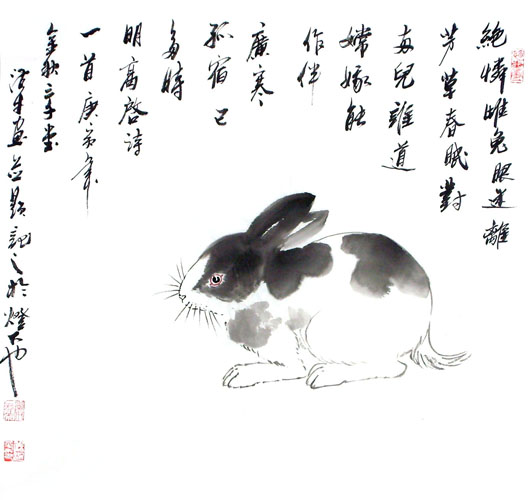 絶憐雌兔眼迷離
芳草春眠對
兩兒誰道
嫦娥能
作伴
廣寒
孤宿已
多時
明高啓詩
一首庚寅年
金秋
畫並題記之於燈下